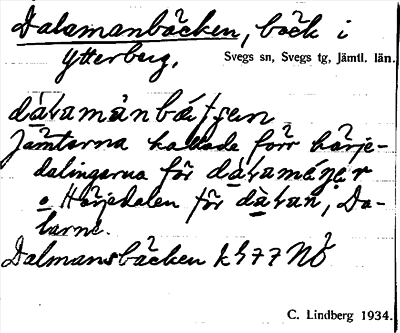 Dalamanbäcken, bäck i
Ytterberg,
Svegs sn, Svegs tg, Jämtl. län.
Jämtarna kallade förr härje-
dalingarna för
o Härjedalen för dalan, Da-
larne.
Dalmansbäcken k 577 NÖ
C. Lindberg 1934.